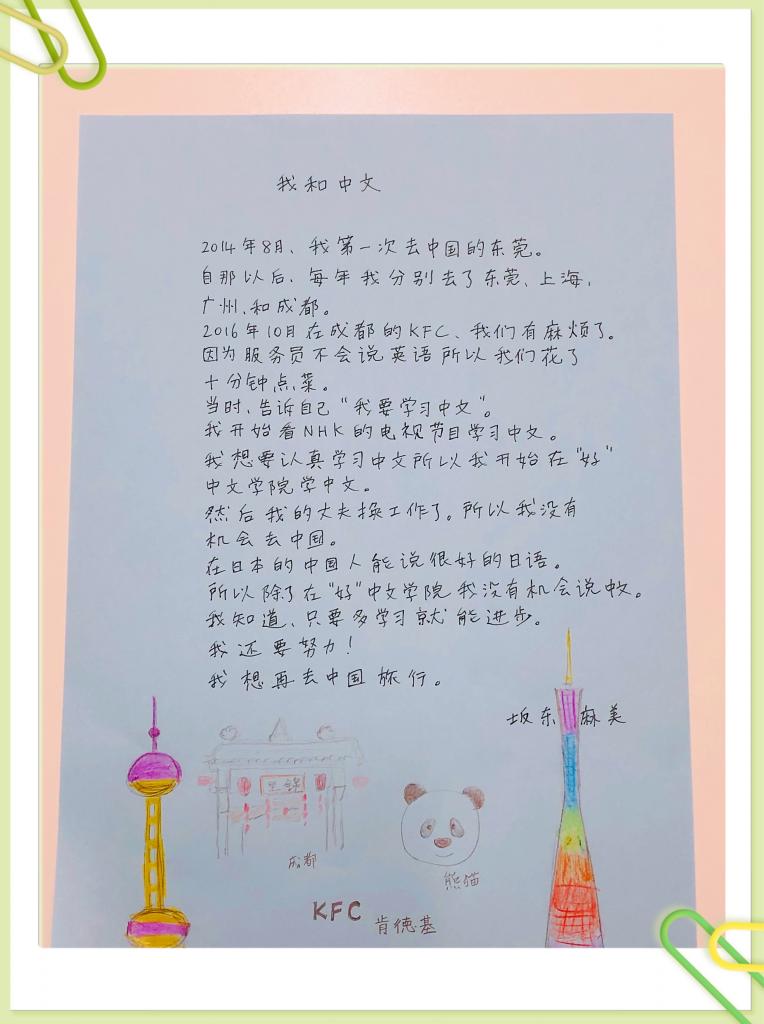 我和中文
2014年8月、我第一次去中国的东莞。
自那以后、每年我分别去了东莞、上海、
广州、和成都。
2016年10月在成都的KFC、我们有麻烦了。
因为服务员不会说英语所以我们花了
十分钟点菜。
当时、告诉自己“我要学习中文”。
我开始看NHK的电视节目学习中文。
我想要认真学习中文所以我开始在“好”
中文学院学中文。
然后我的丈夫换工作了。所以我没有
机会去中国。
在日本的中国人能说很好的日语。
所以除了在“好”中文学院我没有机会说中文。
我知道、只要多学习就能进步。
我还要努力！
我想再去中国旅行。
坂东麻美
成都
熊猫
KFC 肯德基